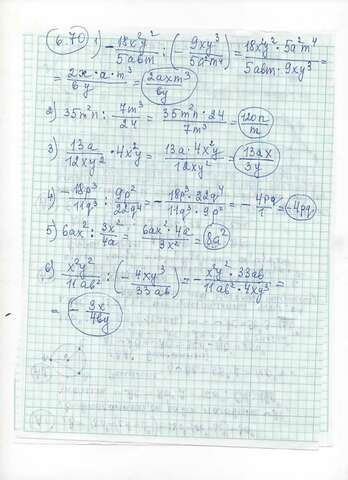 6.70 1) - 18x²y²/5abm : (- 9xy³/5a²m⁴) = 18x²y² · 5a²m⁴/5abm · 9xy³ =
= 2x · a · m³/by = 2axm³/by
2) 35m²n : 7m³/24 = 35m²n · 24/7m³ = 120n/m
3) 13a/12xy² · 4x²y = 13a · 4x²y/12xy² = 13ax/3y
4) -18p³/11q³ : 9p²/22q⁴ = - 18p³ · 22q⁴/11q³ · 9p² = - 4pq/1 = -4pq
5) 6ax² : 3x²/4a = 6ax² · 4a/3x² = 8a²
6) x²y²/11ab² : (- 4xy³/33ab) = - x²y² · 33ab/11ab² · 4xy³ =
= - 3x/4by